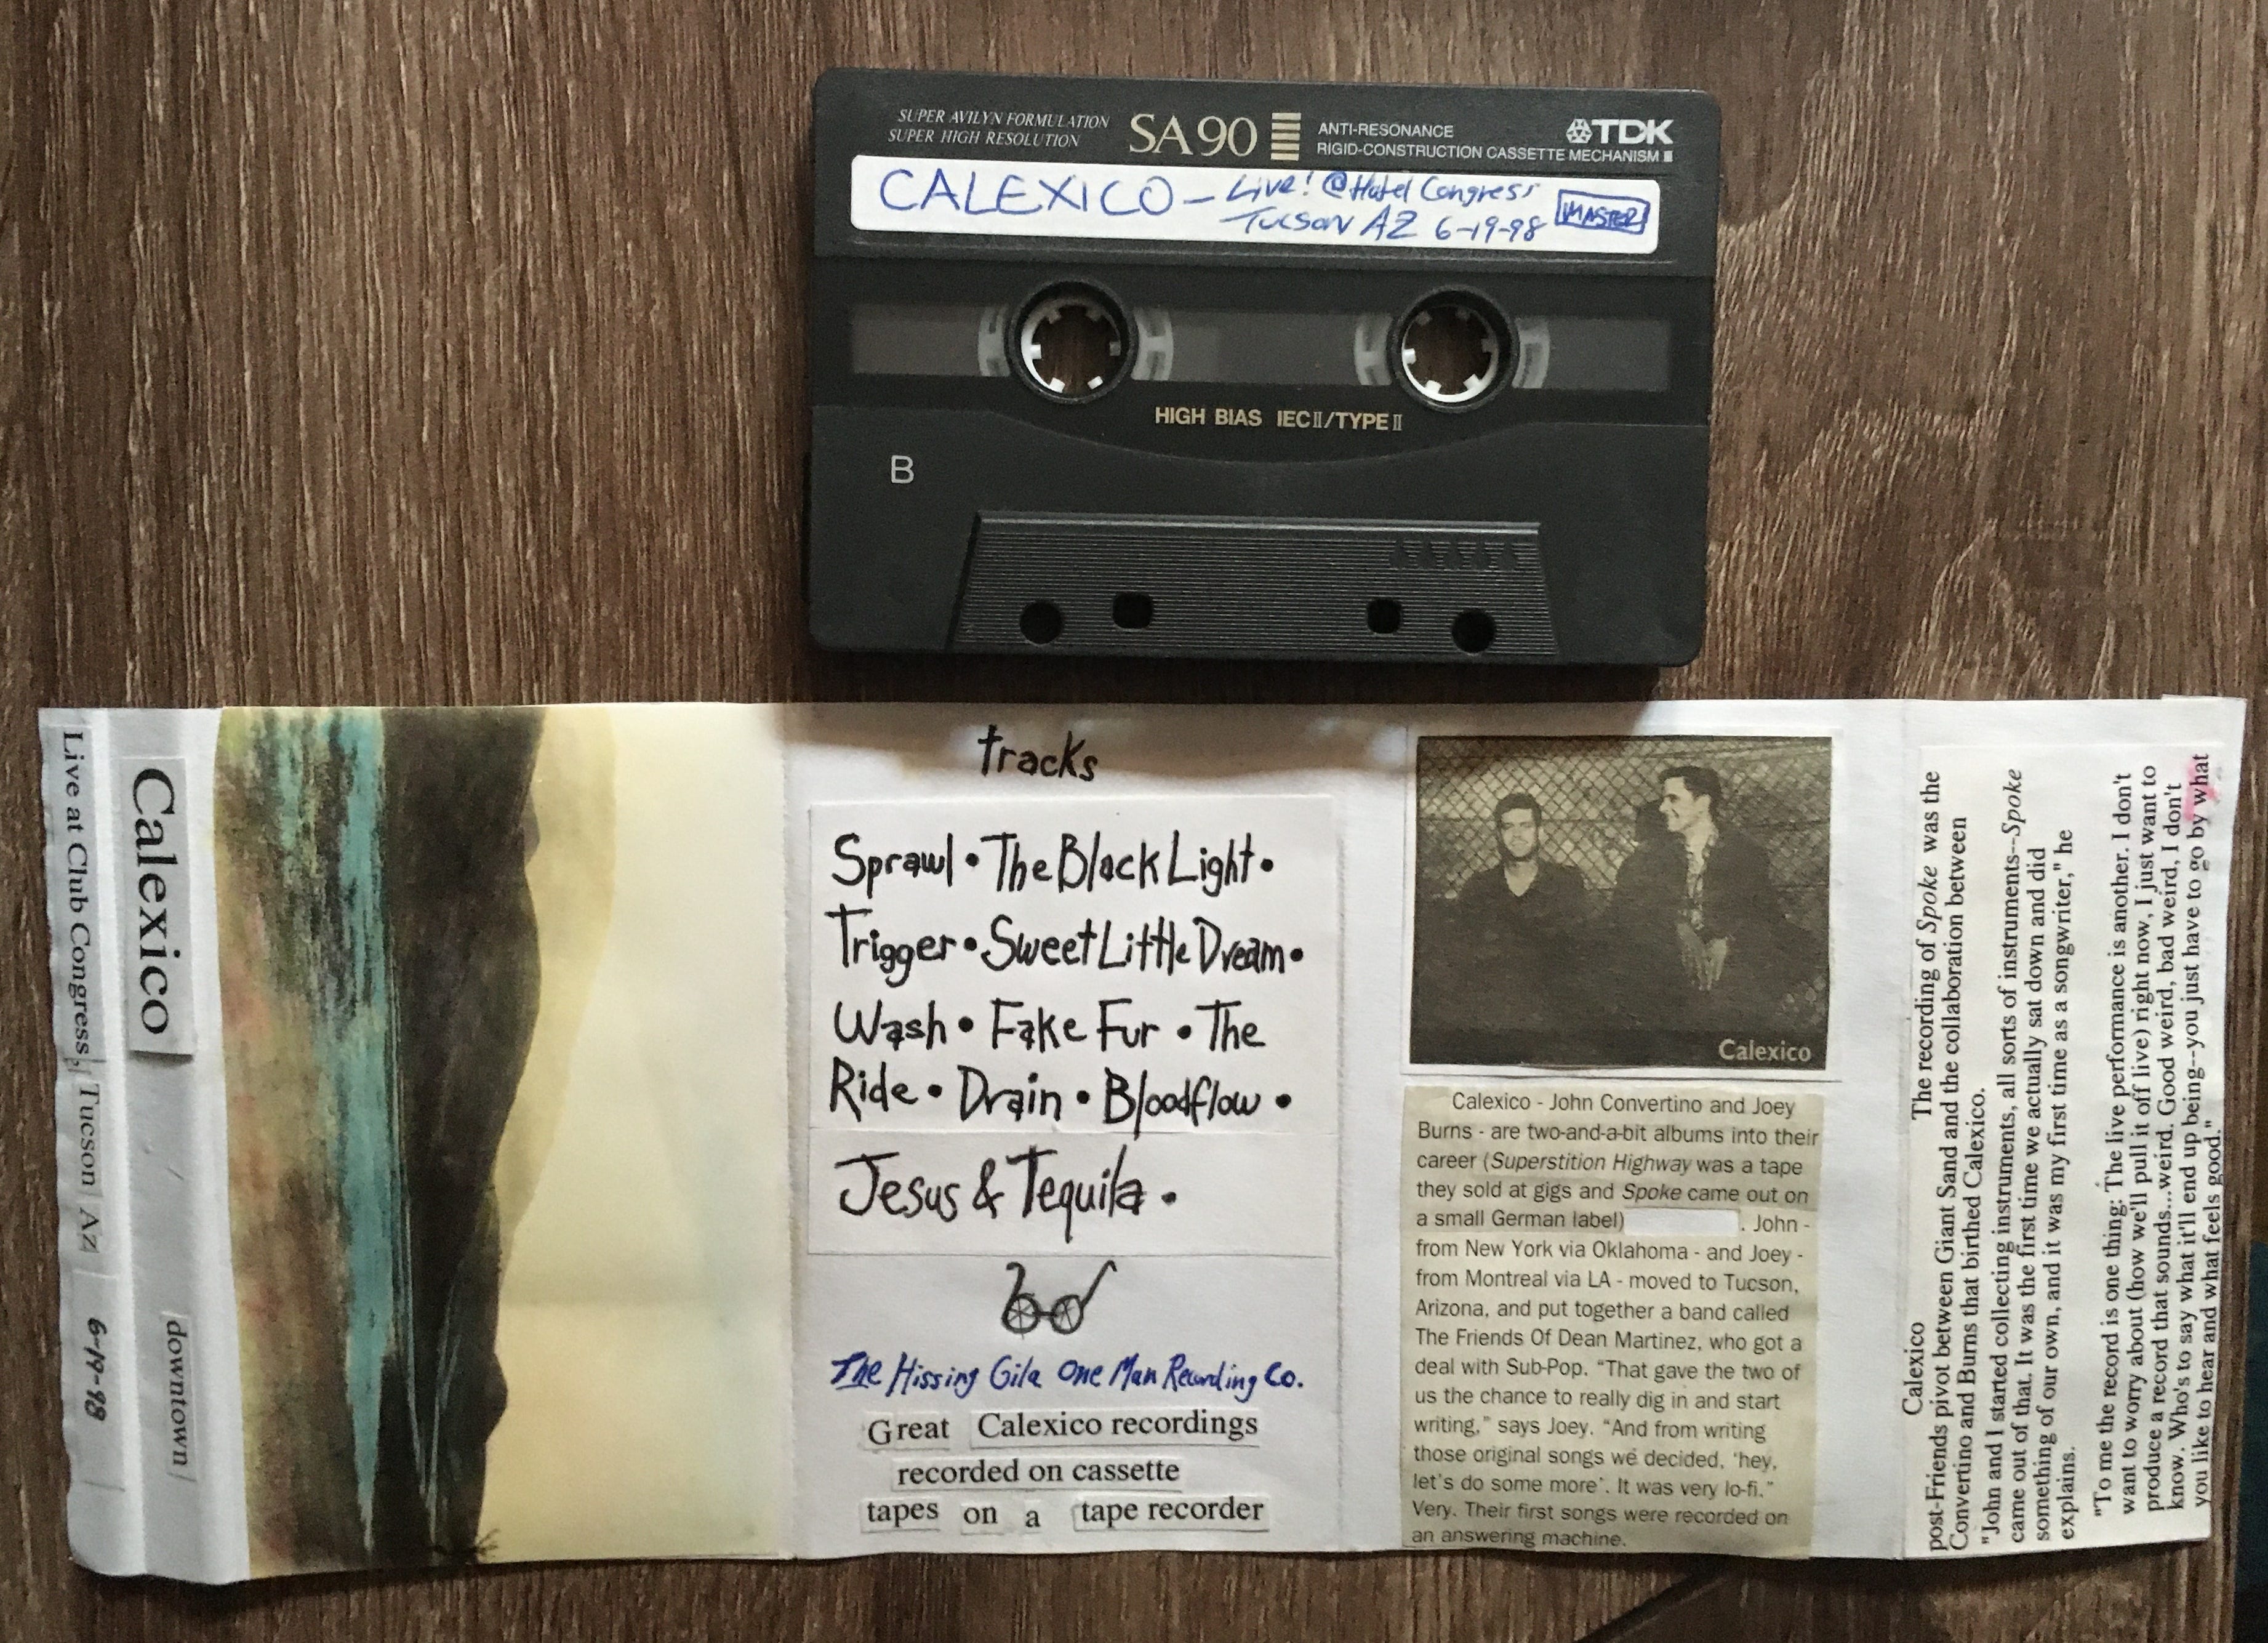 SUPER AVILYN FORMULATION
SUPER HIGH RESOLUTION
SA90
ANTI-RESONANCE
RIGID-CONSTRUCTION CASSETTE MECHANISM
TDK
CALEXICO - Live! @ Hotel Congress
Tucson AZ 6-19-98
MASTER
HIGH BIAS IECII/TYPEII
B
Live at Club Congress, Tucson Az 6-19-98
Calexico
downtown
tracks
Sprawl • The Black Light •
Trigger • Sweet Little Dream •
Wash • Fake Fur • The
Ride • Drain • Bloodflow •
Jesus & Tequila •
The Hissing Gila One Man Recording Co.
Great Calexico recordings
recorded on cassette
tapes on a tape recorder
Calexico
Calexico - John Convertino and Joey
Burns - are two-and-a-bit albums into their
career (Superstition Highway was a tape
they sold at gigs and Spoke came out on
a small German label) . John -
from New York via Oklahoma - and Joey -
from Montreal via LA - moved to Tucson,
Arizona, and put together a band called
The Friends Of Dean Martinez, who got a
deal with Sub-Pop. “That gave the two of
us the chance to really dig in and start
writing,” says Joey. “And from writing
those original songs we decided, ‘hey,
let's do some more’. It was very lo-fi.”
Very. Their first songs were recorded on
an answering machine.
Calexico The recording of Spoke was the
post-Friends pivot between Giant Sand and the collaboration between
Convertino and Burns that birthed Calexico.
"John and I started collecting instruments, all sorts of instruments--Spoke
came out of that. It was the first time we actually sat down and did
something of our own, and it was my first time as a songwriter," he
explains.
"To me the record is one thing: The live performance is another. I don't
want to worry about (how we'll pull it off live) right now, I just want to
produce a record that sounds...weird. Good weird, bad weird, I don't
know. Who's to say what it'll end up being--you just have to go by what
you like to hear and what feels good."